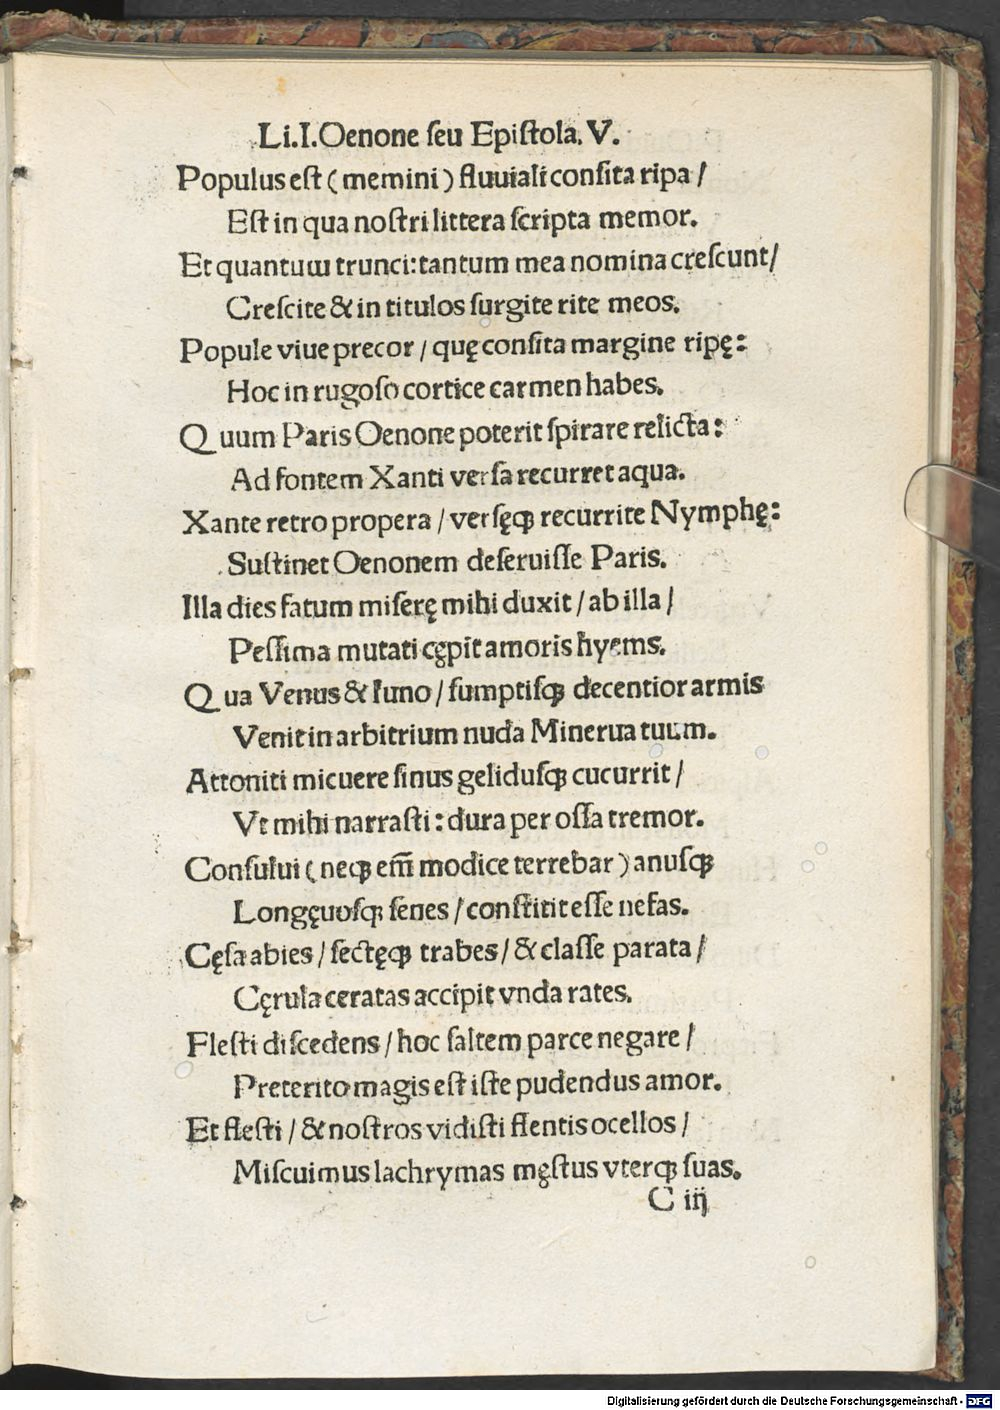 Li.I.Oenone ſeu Epiſtola.V.
Populus eſt ( memini ) fluuiali conſita ripa /
Eſt in qua noſtri littera ſcripta memor.
Et quantum trunci:tantum mea nomina creſcunt/
Creſcite & in titulos ſurgite rite meos.
Popule viue precor / quę conſita margine ripę:
Hoc in rugoſo cortice carmen habes.
Quum Paris Oenone poterit ſpirare relicta:
Ad fontem Xanti verſa recurret aqua.
Xante retro propera / verſęqꝫ recurrite Nymphę:
Suſtinet Oenonem deſeruiſſe Paris.
Illa dies fatum miſerę mihi duxit / ab illa /
Peſſima mutati cępit amoris hyems.
Qua Venus & Iuno / ſumptiſqꝫ decentior armis
Venit in arbitrium nuda Minerua tuum.
Attoniti micuere ſinus geliduſqꝫ cucurrit /
Vt mihi narraſti : dura per oſſa tremor.
Conſului ( neqꝫ em̄ modice terrebar ) anuſqꝫ
Longęuoſqꝫ ſenes / conſtitit eſſe nefas.
Cęſa abies / ſectęqꝫ trabes / & claſſe parata /
Cęrula ceratas accipit vnda rates.
Fleſti diſcedens / hoc ſaltem parce negare /
Preterito magis eſt iſte pudendus amor.
Et fleſti / & noſtros vidiſti flentis ocellos /
Miſcuimus lachrymas męſtus vterqꝫ ſuas.
C iij
Digitalisierung gefördert durch die Deutsche Forschungsgemeinschaft - DFG